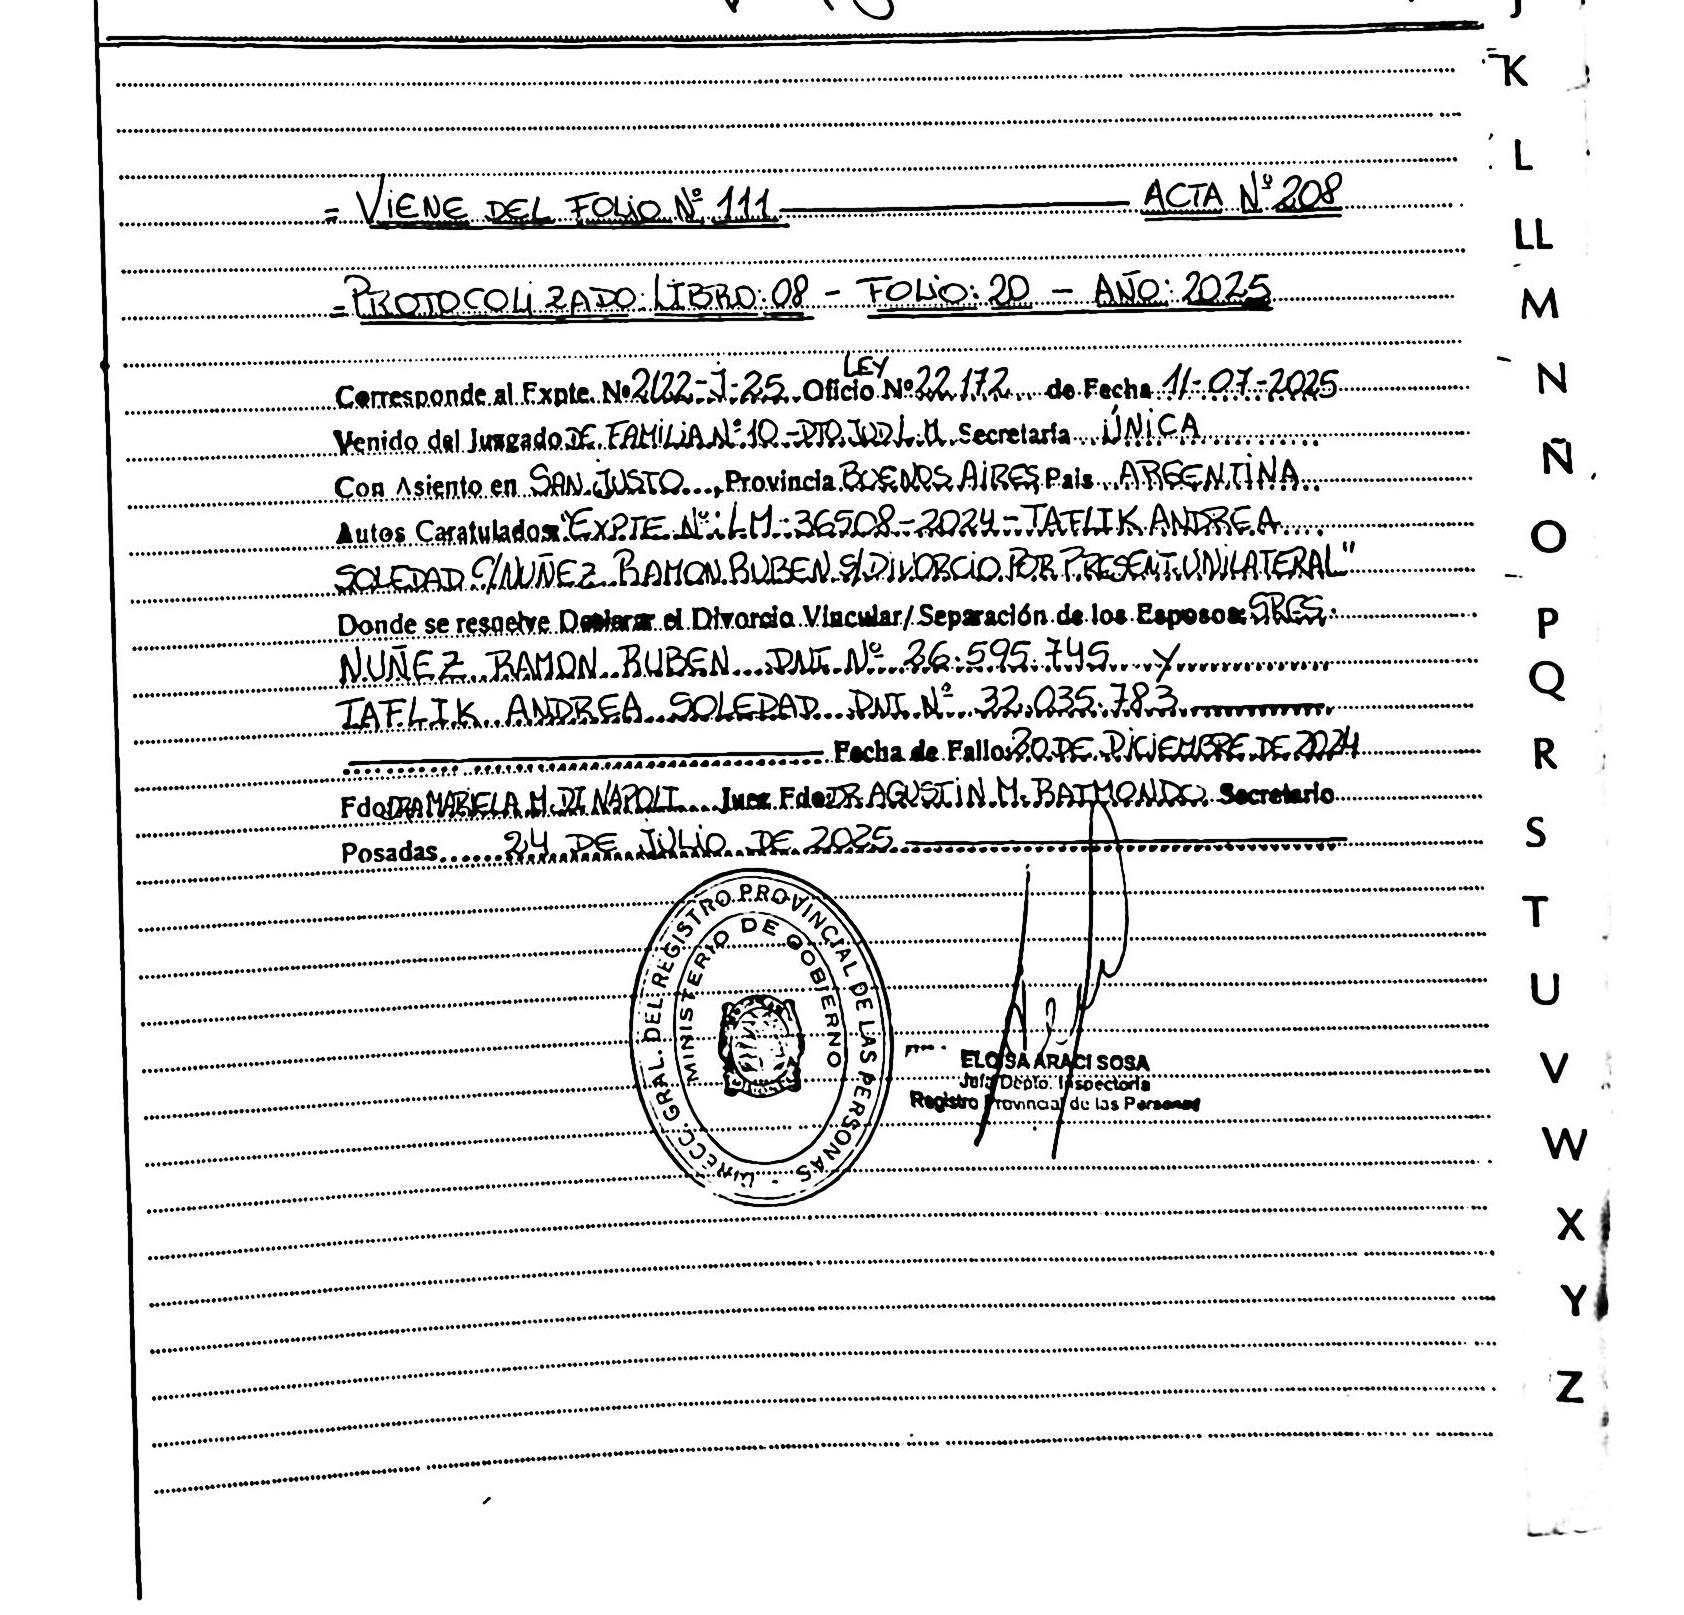 = VIENE DEL FOLIO Nº 111 ACTA Nº 208
= PROTOCOLIZADO: LIBRO: 08 - FOLIO: 20 - AÑO: 2025
LEY
Corresponde al Expte. Nº 2122-J-25 Oficio Nº 22.172 de Fecha 11-07-2025
Venido del Juzgado DE FAMILIA Nº 10 - DTO JUD L.M. Secretaría ÚNICA
Con Asiento en SAN JUSTO, Provincia BUENOS AIRES País ARGENTINA
Autos Caratulados: "EXPTE Nº: LM-36508-2024-TAFLIK ANDREA
SOLEDAD C/NUÑEZ RAMON RUBEN S/DIVORCIO POR PRESENT. UNILATERAL"
Donde se resuelve Declarar el Divorcio Vincular/Separación de los Esposos: SRES.
NUÑEZ RAMON RUBEN DNI Nº 36.595.745 Y
TAFLIK ANDREA SOLEDAD DNI Nº 32.035.783
Fecha de Fallo: 30 DE DICIEMBRE DE 2024
Fdo DRA MARIELA M. DI NAPOLI Juez Fdo: DR AGUSTIN M. RAIMONDO Secretario
Posadas 24 DE JULIO DE 2025
DIRECC. GRAL. DEL REGISTRO PROVINCIAL DE LAS PERSONAS
MINISTERIO DE GOBIERNO
ELOISA ARACI SOSA
Jefa Depto. Inspectoría
Registro Provincial de las Personas
J
K
L
LL
M
N
Ñ
O
P
Q
R
S
T
U
V
W
X
Y
Z